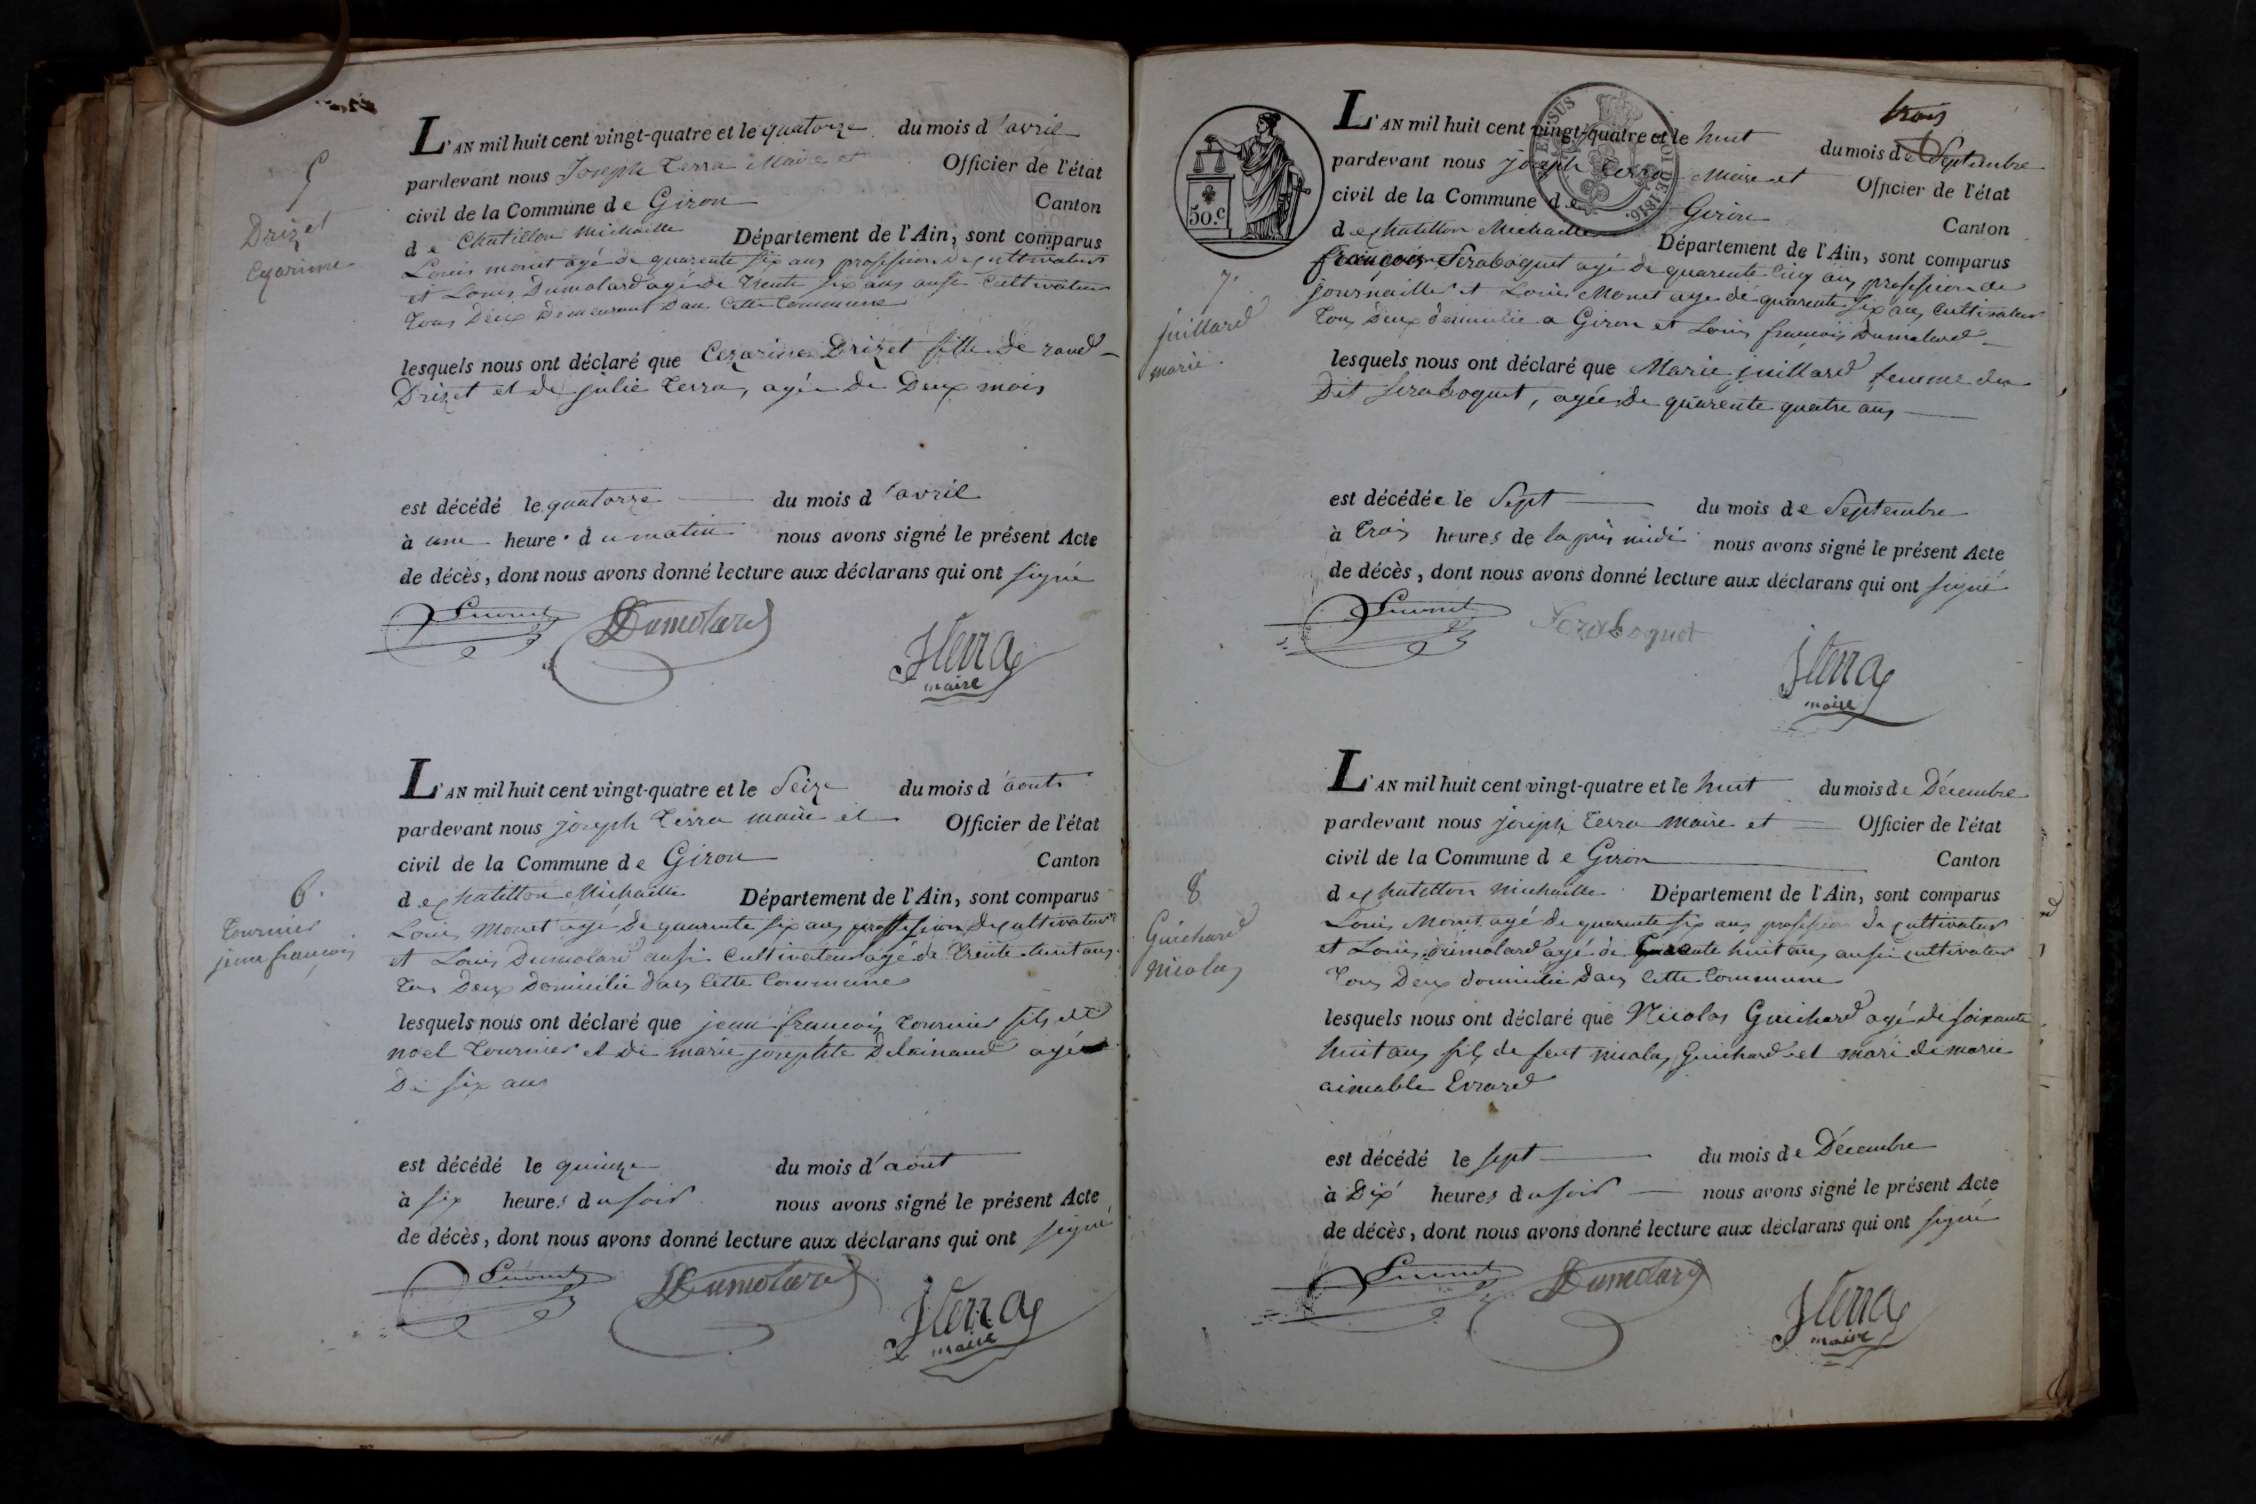 5
Drizet
Cezarine
L'AN mil huit cent vingt-quatre et le quatorze du mois d'avril
pardevant nous Joseph Terra Maire et Officier de l'état
civil de la Commune de Giron Canton
de Chatillon Michaille Département de l'Ain, sont comparus
Louis monet agé de quarente six ans profession de cultivateur
et Louis Dumolard agé de trente six ans aussi cultivateur
tous deux demeurant dans cette Commune
lesquels nous ont déclaré que Cezarine Drizet fille de
Drizet et de julie Terra, agée de Deux mois
est décédé le quatorze du mois d'avril
à une heure du matin nous avons signé le présent Acte
de décès, dont nous avons donné lecture aux déclarans qui ont signé
Dumolard
JTerra
maire
6.
Tournier
jean françois
L'AN mil huit cent vingt-quatre et le Seize du mois d'aout
pardevant nous joseph Terra maire et Officier de l'état
civil de la Commune de Giron Canton
de chatillon Michaille Département de l'Ain, sont comparus
Louis Monet agé de quarente six ans profession de cultivateur
et Louis Dumolard aussi cultivateur agé de trente huit ans
tous Deux Domicilié dans cette Commune
lesquels nous ont déclaré que jean françois Tournier fils de
noel Tournier et de marie josephte agé
De six ans
est décédé le quinze du mois d'aout
à six heures du soir nous avons signé le présent Acte
de décès, dont nous avons donné lecture aux déclarans qui ont signé
Dumolard
JTerra
maire
50.c
7.
juillard
marie
trois
L'AN mil huit cent vingt-quatre et le huit du mois de Septembre
pardevant nous joseph Terra Maire et Officier de l'état
civil de la Commune de Giron Canton
de chatillon Michaille Département de l'Ain, sont comparus
françois Seraboquet agé de quarente cinq ans profession de
journaillier et Louis Monet agé de quarente six ans cultivateur
tous deux domicilié a Giron et Louis françois Dumolard
lesquels nous ont déclaré que Marie juillard femme du
Dit Seraboquet, agée de quarente quatre ans
est décédée le Sept du mois de Septembre
à trois heures de laprès midi nous avons signé le présent Acte
de décès, dont nous avons donné lecture aux déclarans qui ont signé
Seraboquet
JTerra
maire
8
Guichard
nicolas
L'AN mil huit cent vingt-quatre et le huit du mois de Décembre
pardevant nous joseph Terra maire et Officier de l'état
civil de la Commune de Giron Canton
de chatillon michaille Département de l'Ain, sont comparus
Louis Monet agé de quarente six ans profession de cultivateur
et Louis dumolard agé de huit ans aussi cultivateur
tous Deux domicilié dans cette Commune
lesquels nous ont déclaré que Nicolas Guichard agé de soixante
huit ans fils de feut nicolas Guichard et mari de marie
aimable Evrard
est décédé le sept du mois de Décembre
à Dix heures du soir nous avons signé le présent Acte
de décès, dont nous avons donné lecture aux déclarans qui ont signé
Dumolard
JTerra
maire